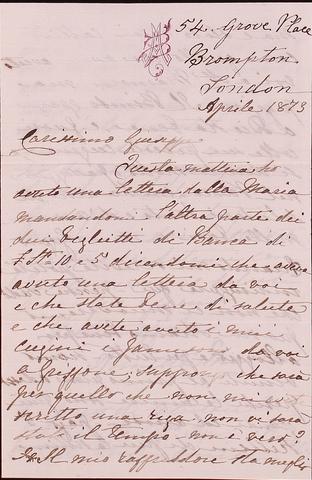 54. Grove Place
Brompton
London
Aprile 1873
Carissimo Giuseppe
Questa mattina ho
avuto una lettera dalla Maria
mandandomi l'altra parte dei
due Biglietti di Banca di
10 e 5 dicendomi che aveva
avuto una lettera da voi
e che state bene di salute
e che avete avuto i miei
cugini i da voi
a Griffone, suppongo che sarà
per quello che non mi
scritto una riga non vi sara
il tempo - non è vero?
Il mio raffreddore sta meglio